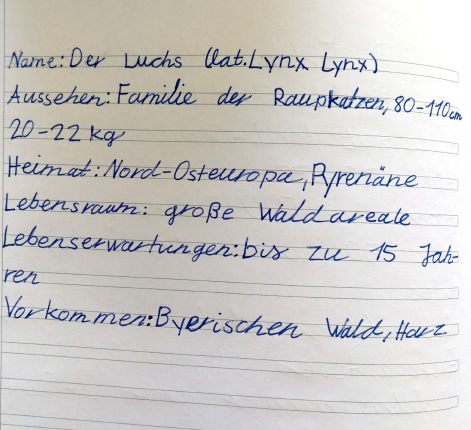 Name: Der Luchs (lat. Lynx Lynx)
Aussehen: Familie der Raupkatzen, 80-110cm
20-22 kg
Heimat: Nord-Osteuropa, Pyrenäne
Lebensraum: große Waldareale
Lebenserwartungen: bis zu 15 Jah-
ren
Vorkommen: Byerischen Wald, Harz